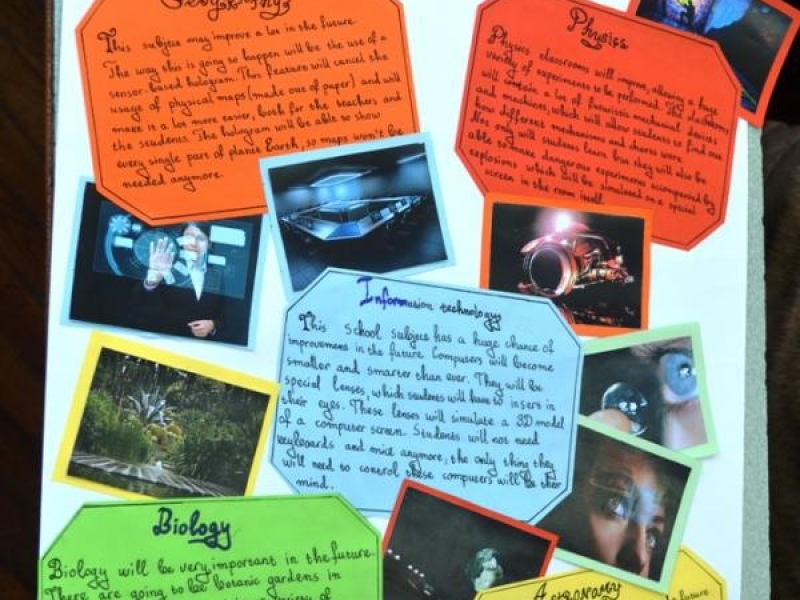 Geography
This subject may improve a lot in the future.
The way this is going to happen will be the use of a
sensor-based hologram. This feature will cancel the
usage of physical maps (made out of paper) and will
make it a lot more easier, both for the teachers and
the students. The hologram will be able to show
every single part of planet Earth, so maps won't be
needed anymore.
Physics
Physics classrooms will improve, allowing a huge
variety of experiments to be performed. The classrooms
will contain a lot of futuristic mechanical devices
and machines, which will allow students to find out
how different mechanisms and work.
Not only will students learn but they will also be
able to make dangerous experiments acompanied by
explosions which will be simulated on a special
screen in the room itself.
Information technology
This school subject has a huge chance of
improvement in the future. Computers will become
smaller and smarter than ever. They will be
special lenses, which students will have to insert in
their eyes. These lenses will simulate a 3D model
of a computer screen. Students will not need
keyboards and mice anymore, the only thing they
will need to control these computers will be their
mind.
Biology
Biology will be very important in the future.
There are going to be botanic gardens in
of
Astronomy
future